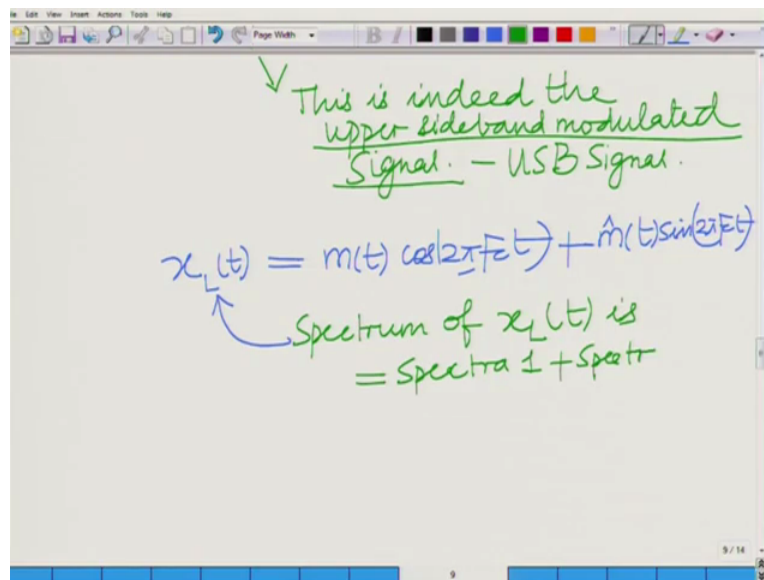 File Edit View Insert Actions Tools Help
Page Width
This is indeed the
upper sideband modulated
Signal. – USB Signal.
x_L(t) = m(t) cos(2πFct) + m̂(t) sin(2πFct)
Spectrum of x_L(t) is
= Spectra 1 + Spectr
9 / 14
9